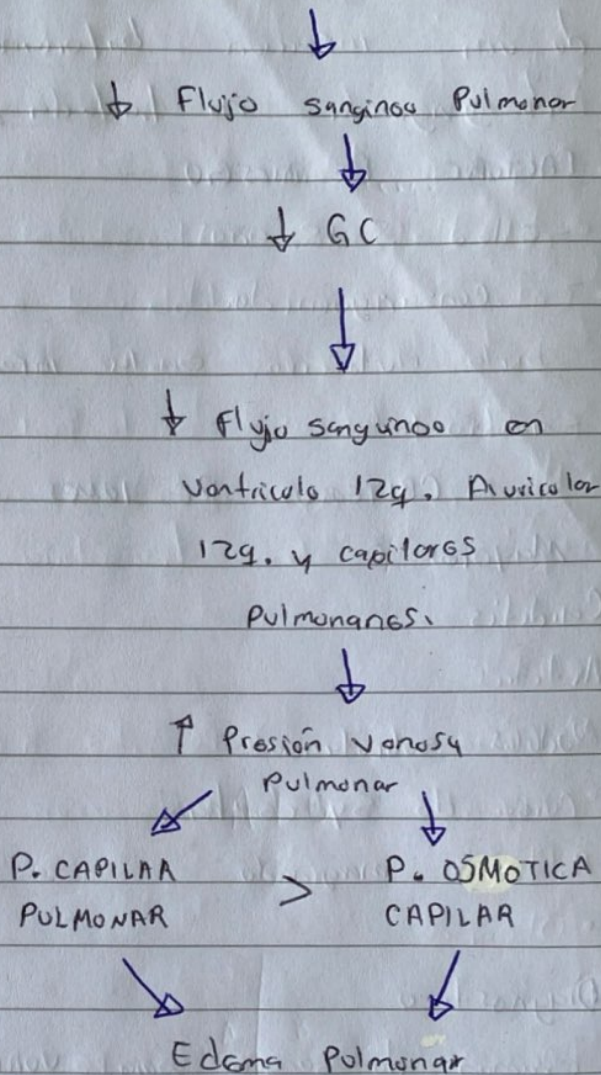 ↓ Flujo sanginoo Pulmonar
↓ GC
↓ Flujo sanguinoo en
Ventriculo Izq. Auricular
Izq. y capilares
Pulmonanes.
↑ Presión Venosa
Pulmonar
P. CAPILAR > P. OSMOTICA
PULMONAR CAPILAR
Edema Pulmonar